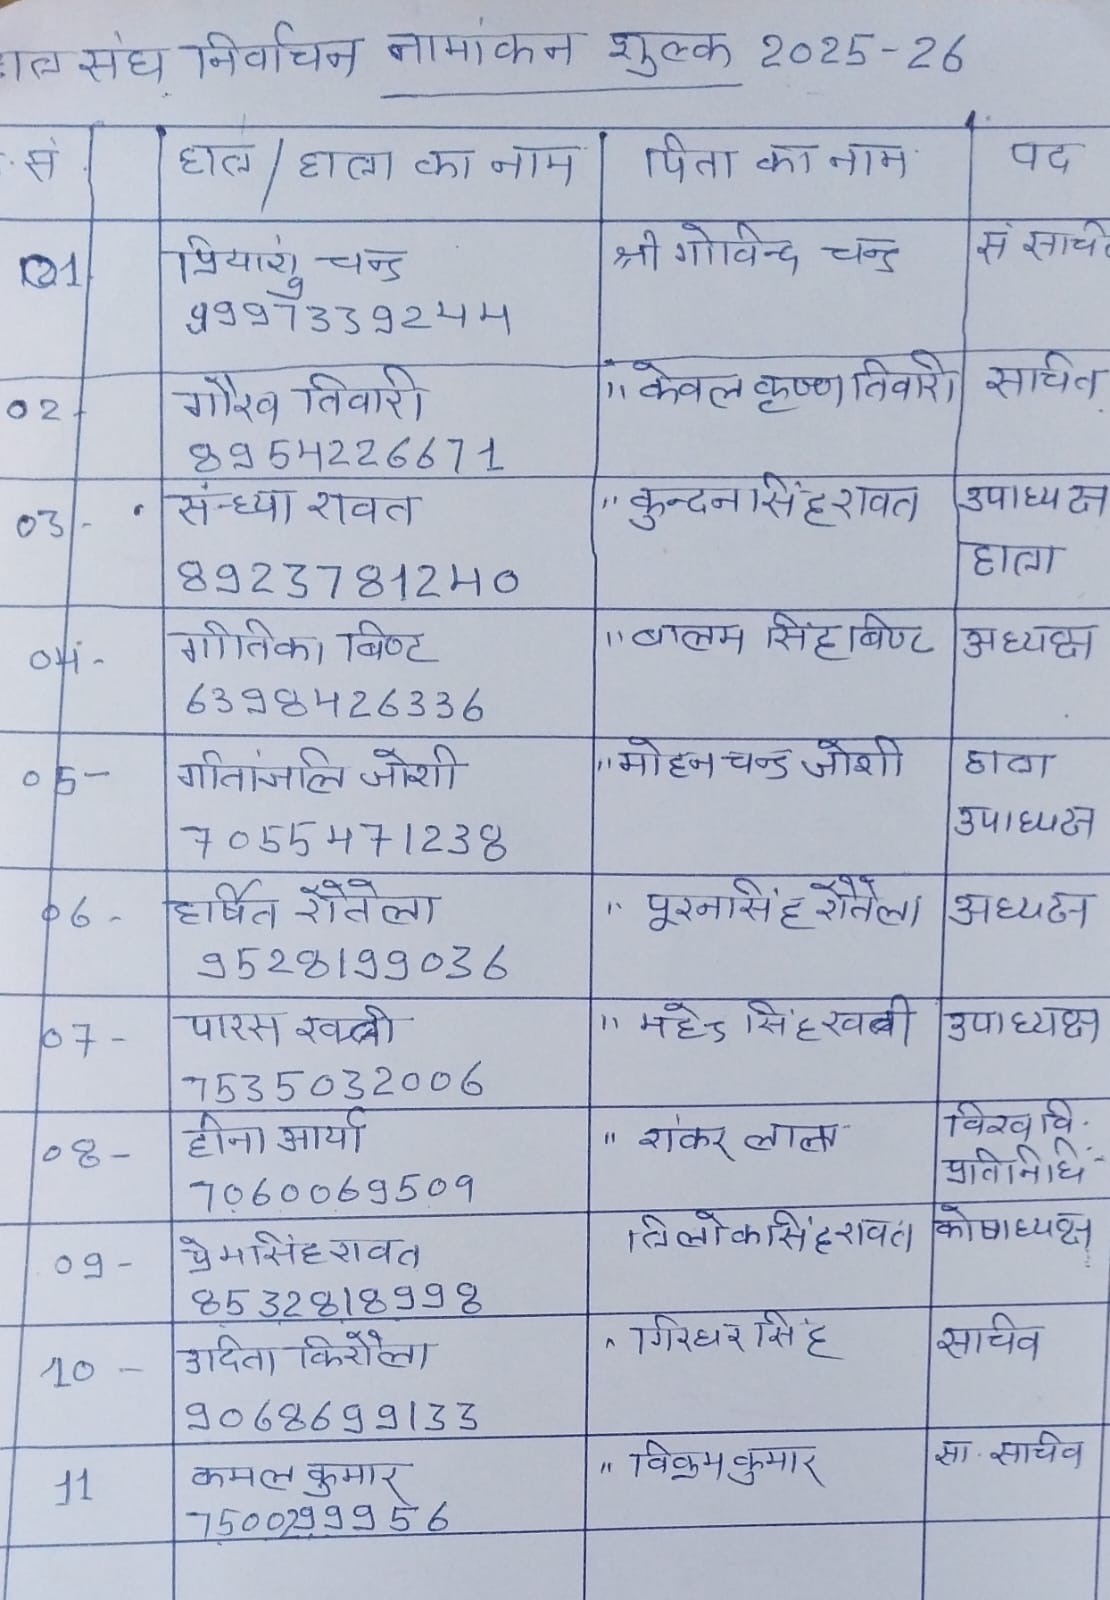 छात्र संघ निर्वाचन नामांकन शुल्क 2025-26
सं छात्र / छात्रा का नाम पिता का नाम पद
01 प्रियांशु चन्द्र श्री गोविन्द चन्द्र सं साचि
99973392444
02 गौरव तिवारी " केवल कृष्ण तिवारी साचिव
8954226671
03 - संन्ध्या रावत " कुन्दन सिंह रावत उपाध्यक्ष
8923781240 छात्रा
04 - गीतिका बिष्ट " बालम सिंह बिष्ट अध्यक्ष
6398426336
05 - गीतांजलि जोशी " मोहन चन्द्र जोशी छात्रा
7055471238 उपाध्यक्ष
06 - हर्षित रौतेला " पूरन सिंह रौतेला अध्यक्ष
9528199036
07 - पारस खत्री " महेन्द्र सिंह खत्री उपाध्यक्ष
7535032006
08 - हीना आर्या " शंकर लाल विश्व वि.
7060069509 प्रतिनिधि
09 - प्रेम सिंह रावत त्रिलोक सिंह रावत कोषाध्यक्ष
8532818998
10 - उदिता किरौला " गिरधर सिंह साचिव
9068699133
11 कमल कुमार " विक्रम कुमार सा. साचिव
7500299956